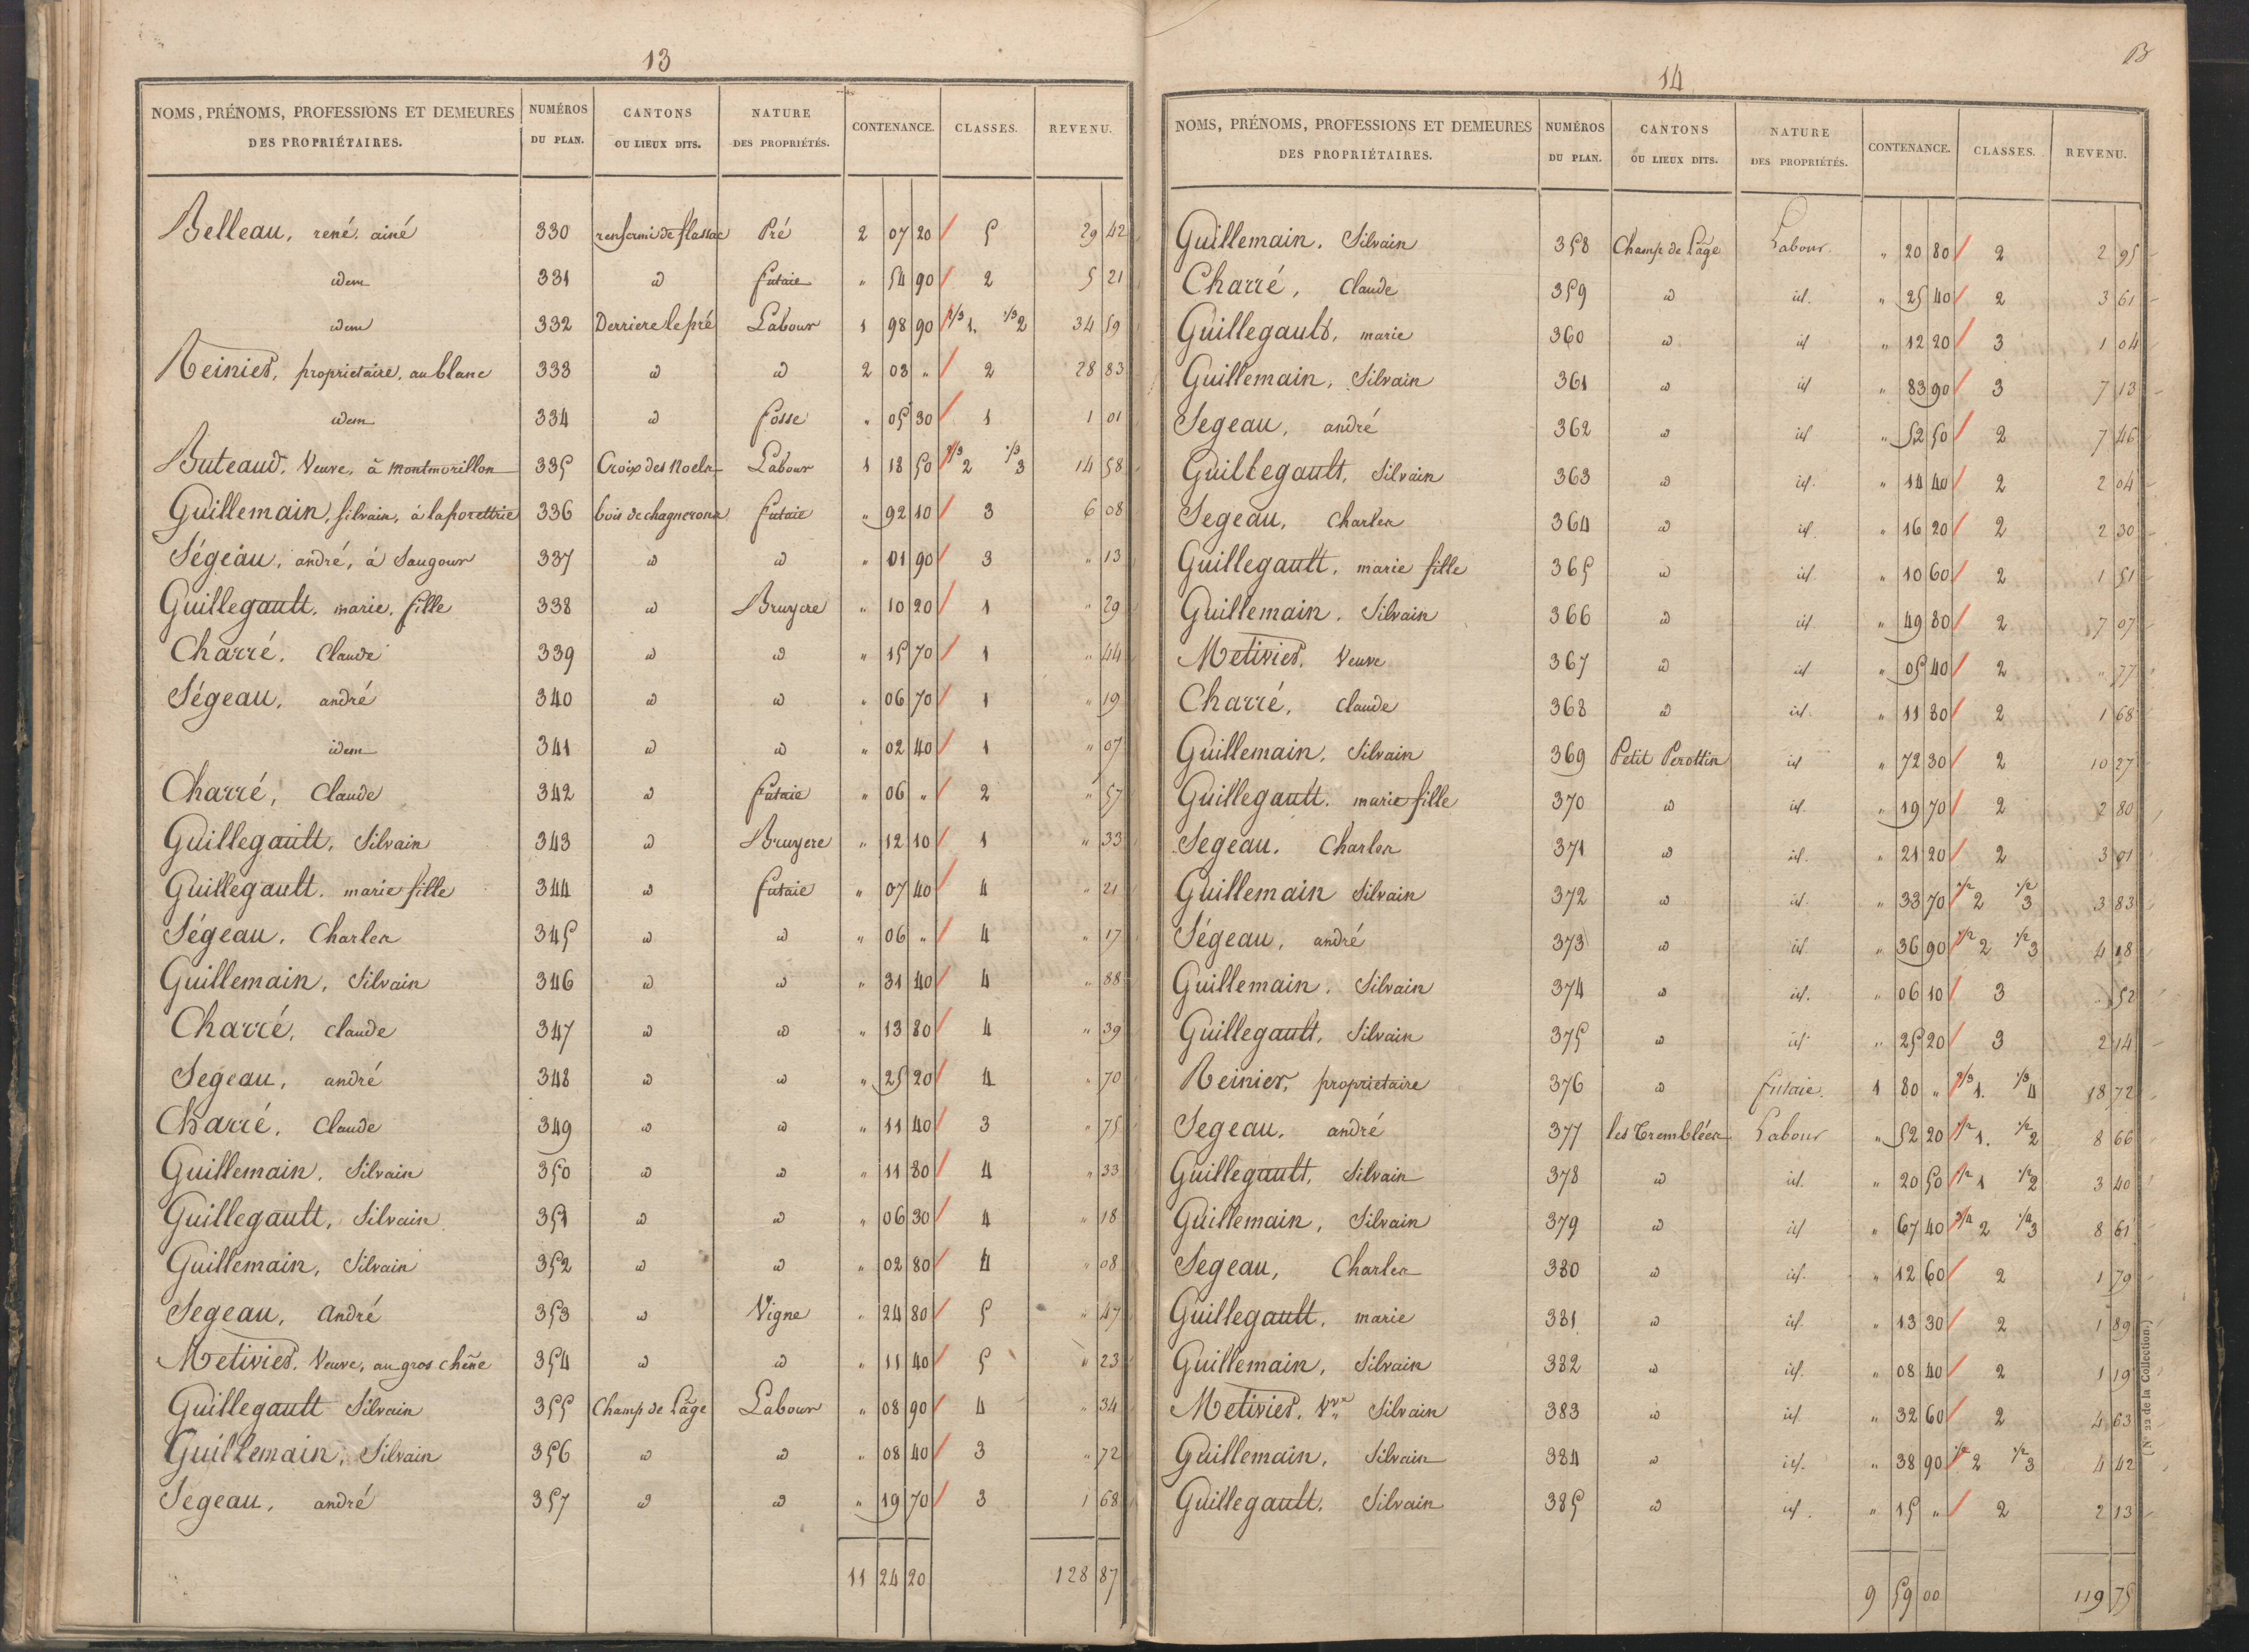 13
NOMS, PRÉNOMS, PROFESSIONS ET DEMEURES DES PROPRIÉTAIRES. NUMÉROS DU PLAN. CANTONS OU LIEUX DITS. NATURE DES PROPRIÉTÉS. CONTENANCE. CLASSES. REVENU.
Belleau, rené, ainé 330 renfermi de flassac Pré 2 07 20 5 29 42
idem 331 id futaie " 54 90 2 5 21
idem 332 Derriere le pré Labour 1 98 90 2/3 1. 1/3 2 34 59
Reinier, proprietaire, au blanc 333 id id 2 03 " 2 28 83
idem 334 id fosse " 05 30 1 1 01
Buteaud, Veuve, à montmorillon 335 Croix des Noels Labour 1 18 50 2/3 2 1/3 3 14 58
Guillemain, silvain, à la porettrie 336 bois de chagnerons futaie " 92 10 3 6 08
Ségeau, andré, à Saugour 337 id id " 01 90 3 " 13
Guillegault, marie, fille 338 id Bruyere " 10 20 1 " 29
Charré, Claude 339 id id " 15 70 1 " 44
Ségeau, andré 340 id id " 06 70 1 " 19
idem 341 id id " 02 40 1 " 07
Charré, Claude 342 id futaie " 06 " 2 " 57
Guillegault, Silvain 343 id Bruyere " 12 10 1 " 33
Guillegault, marie fille 344 id futaie " 07 40 4 " 21
Ségeau, Charles 345 id id " 06 " 4 " 17
Guillemain, Silvain 346 id id " 31 40 4 " 88
Charré, claude 347 id id " 13 80 4 " 39
Segeau, andré 348 id id " 25 20 4 " 70
Charré, Claude 349 id id " 11 40 3 " 75
Guillemain, Silvain 350 id id " 11 80 4 " 33
Guillegault, Silvain 351 id id " 06 30 4 " 18
Guillemain, Silvain 352 id id " 02 80 4 " 08
Segeau, andré 353 id Vigne " 24 80 5 " 47
Metivier, Veuve, au gros chêne 354 id id " 11 40 5 " 23
Guillegault Silvain 355 Champ de Lâge Labour " 08 90 4 " 34
Guillemain, Silvain 356 id id " 08 40 3 " 72
Segeau, andré 357 id id " 19 70 3 1 68
11 24 20 128 87
14
NOMS, PRÉNOMS, PROFESSIONS ET DEMEURES DES PROPRIÉTAIRES. NUMÉROS DU PLAN. CANTONS OU LIEUX DITS. NATURE DES PROPRIÉTÉS. CONTENANCE. CLASSES. REVENU.
Guillemain, Silvain 358 Champ de Lâge Labour " 20 80 2 2 95
Charré, Claude 359 id id. " 25 40 2 3 61
Guillegault, marie 360 id id " 12 20 3 1 04
Guillemain, Silvain 361 id id " 83 90 3 7 13
Segeau, andré 362 id id " 52 50 2 7 46
Guillegault, Silvain 363 id id. " 14 40 2 2 04
Segeau, Charles 364 id id. " 16 20 2 2 30
Guillegault, marie fille 365 id id. " 10 60 2 1 51
Guillemain, Silvain 366 id id. " 49 80 2 7 07
Metivier, Veuve 367 id id " 05 40 2 " 77
Charré, claude 368 id id. " 11 80 2 1 68
Guillemain, Silvain 369 Petit Perottin id " 72 30 2 10 27
Guillegault, marie fille 370 id id. " 19 70 2 2 80
Segeau, Charles 371 id id. " 21 20 2 3 01
Guillemain Silvain 372 id id. " 33 70 1/2 2 1/2 3 3 83
Ségeau, andré 373 id id. " 36 90 1/2 2 1/2 3 4 18
Guillemain, Silvain 374 id id. " 06 10 3 " 52
Guillegault, Silvain 375 id id. " 25 20 3 2 14
Reinier, proprietaire 376 id futaie. 1 80 " 2/3 1. 1/3 4 18 72
Segeau, andré 377 les Trembléés Labour " 52 20 1/2 1. 1/2 2 8 66
Guillegault, Silvain 378 id id. " 20 50 1/2 1 1/2 2 3 40
Guillemain, Silvain 379 id id " 67 40 3/4 2 1/4 3 8 61
Segeau, Charles 380 id id. " 12 60 2 1 79
Guillegault, marie 381 id id. " 13 30 2 1 89
Guillemain, Silvain 382 id id. " 08 40 2 1 19
Metivier, Vve Silvain 383 id id. " 32 60 2 4 63
Guillemain, Silvain 384 id id. " 38 90 1/2 2 1/2 3 4 42
Guillegault, Silvain 385 id id. " 15 " 2 2 13
9 59 00 119 75
(N° 22 de la Collection.)